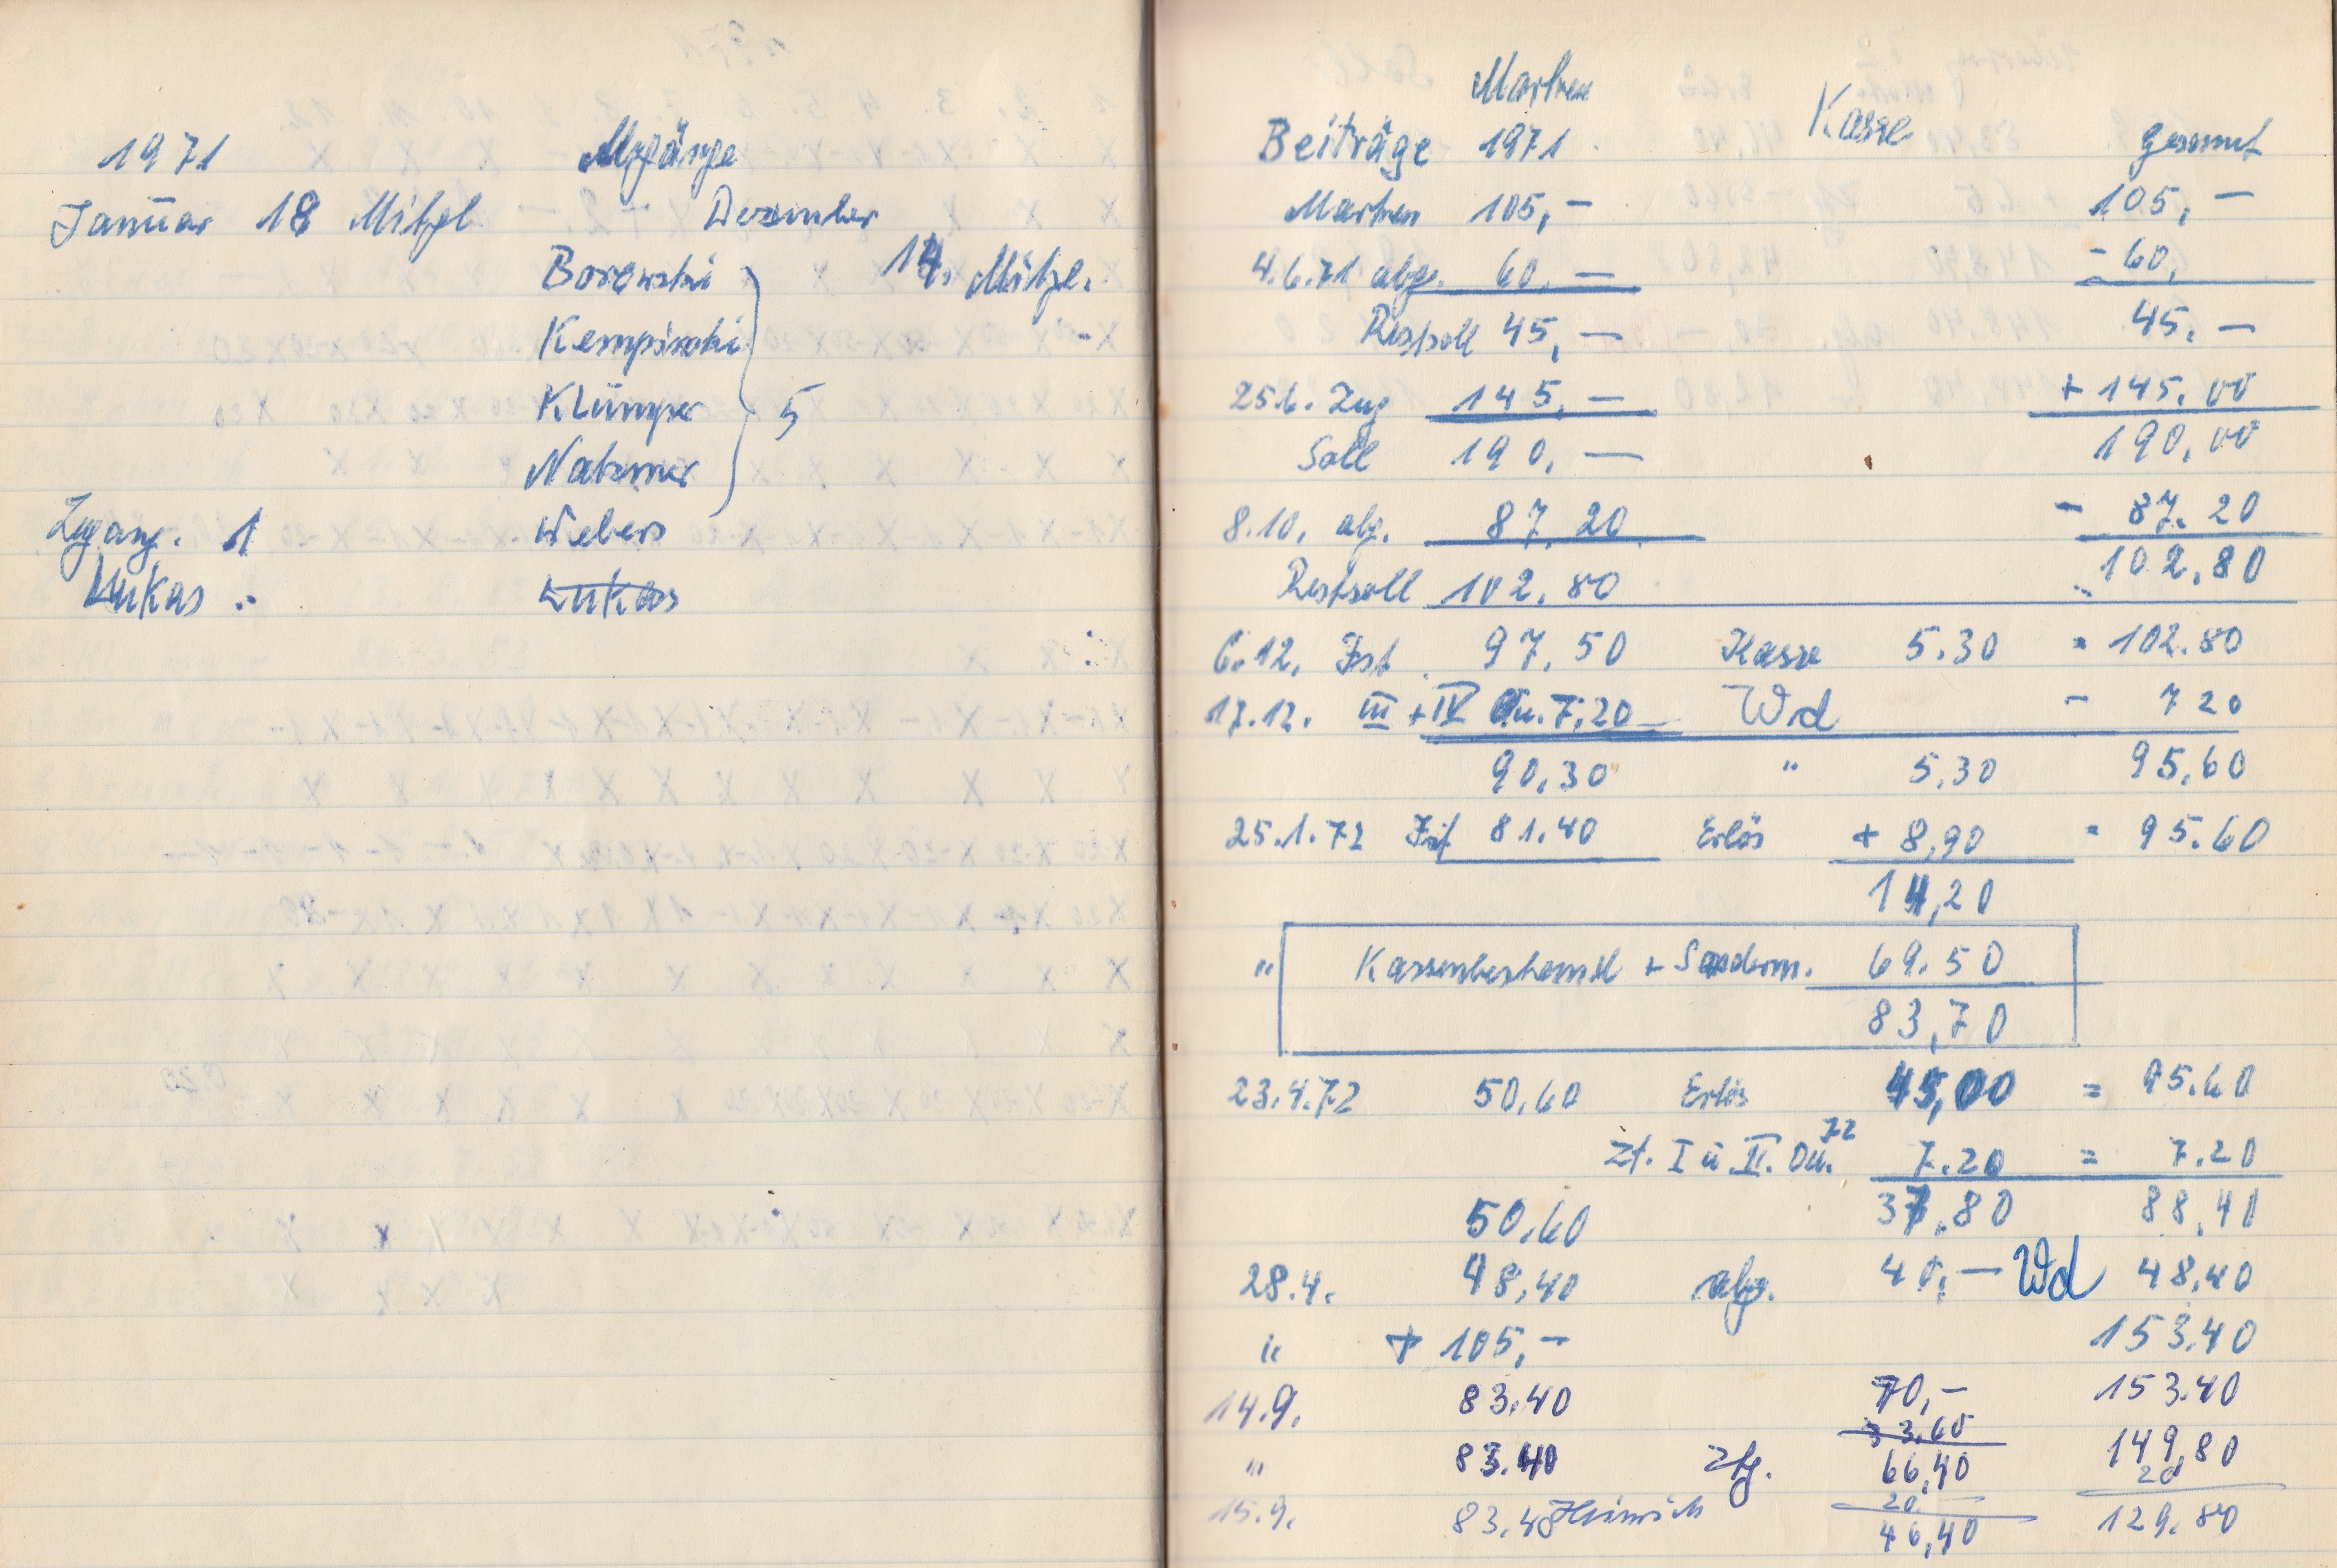 1971 Abgänge
Januar 18 Mitgl Dezember
Borowski 14. Mitgl.
Kempinski
Klümper 5
Natzmer
Zugang. 1 Webers
Lukas Lukas
Marken
Beiträge 1971 Kasse gesamt
Marken 105,— 105,—
4.6.71 abg. 60,— - 60,
Restsoll 45,— 45,—
25.6. Zug 145,— + 145,00
Soll 190,— 190,00
8.10. abg. 87,20 - 87,20
Restsoll 102,80 102,80
6.12. Ist 97,50 Kasse 5.30 = 102.80
17.12. III + IV Qu. 7,20 Wd - 7 20
90,30 " 5,30 95,60
25.1.72 Ist 81.40 Erlös + 8,90 = 95.60
14,20
" Kassenbestand + Sonderm. 69.50
83,70
23.4.72 50,60 Erlös 45,00 = 95.60
Zt. I u II. Qu. 72 7.20 = 7.20
50.60 37.80 88,40
28.4. 48,40 abg. 40,— Wd 48,40
" + 105,— 153.40
14.9. 83.40 70,— 153.40
33,60
" 83.40 66,40 149,80
20 20
15.9. 83.40 Heinrich 46,40 129.80